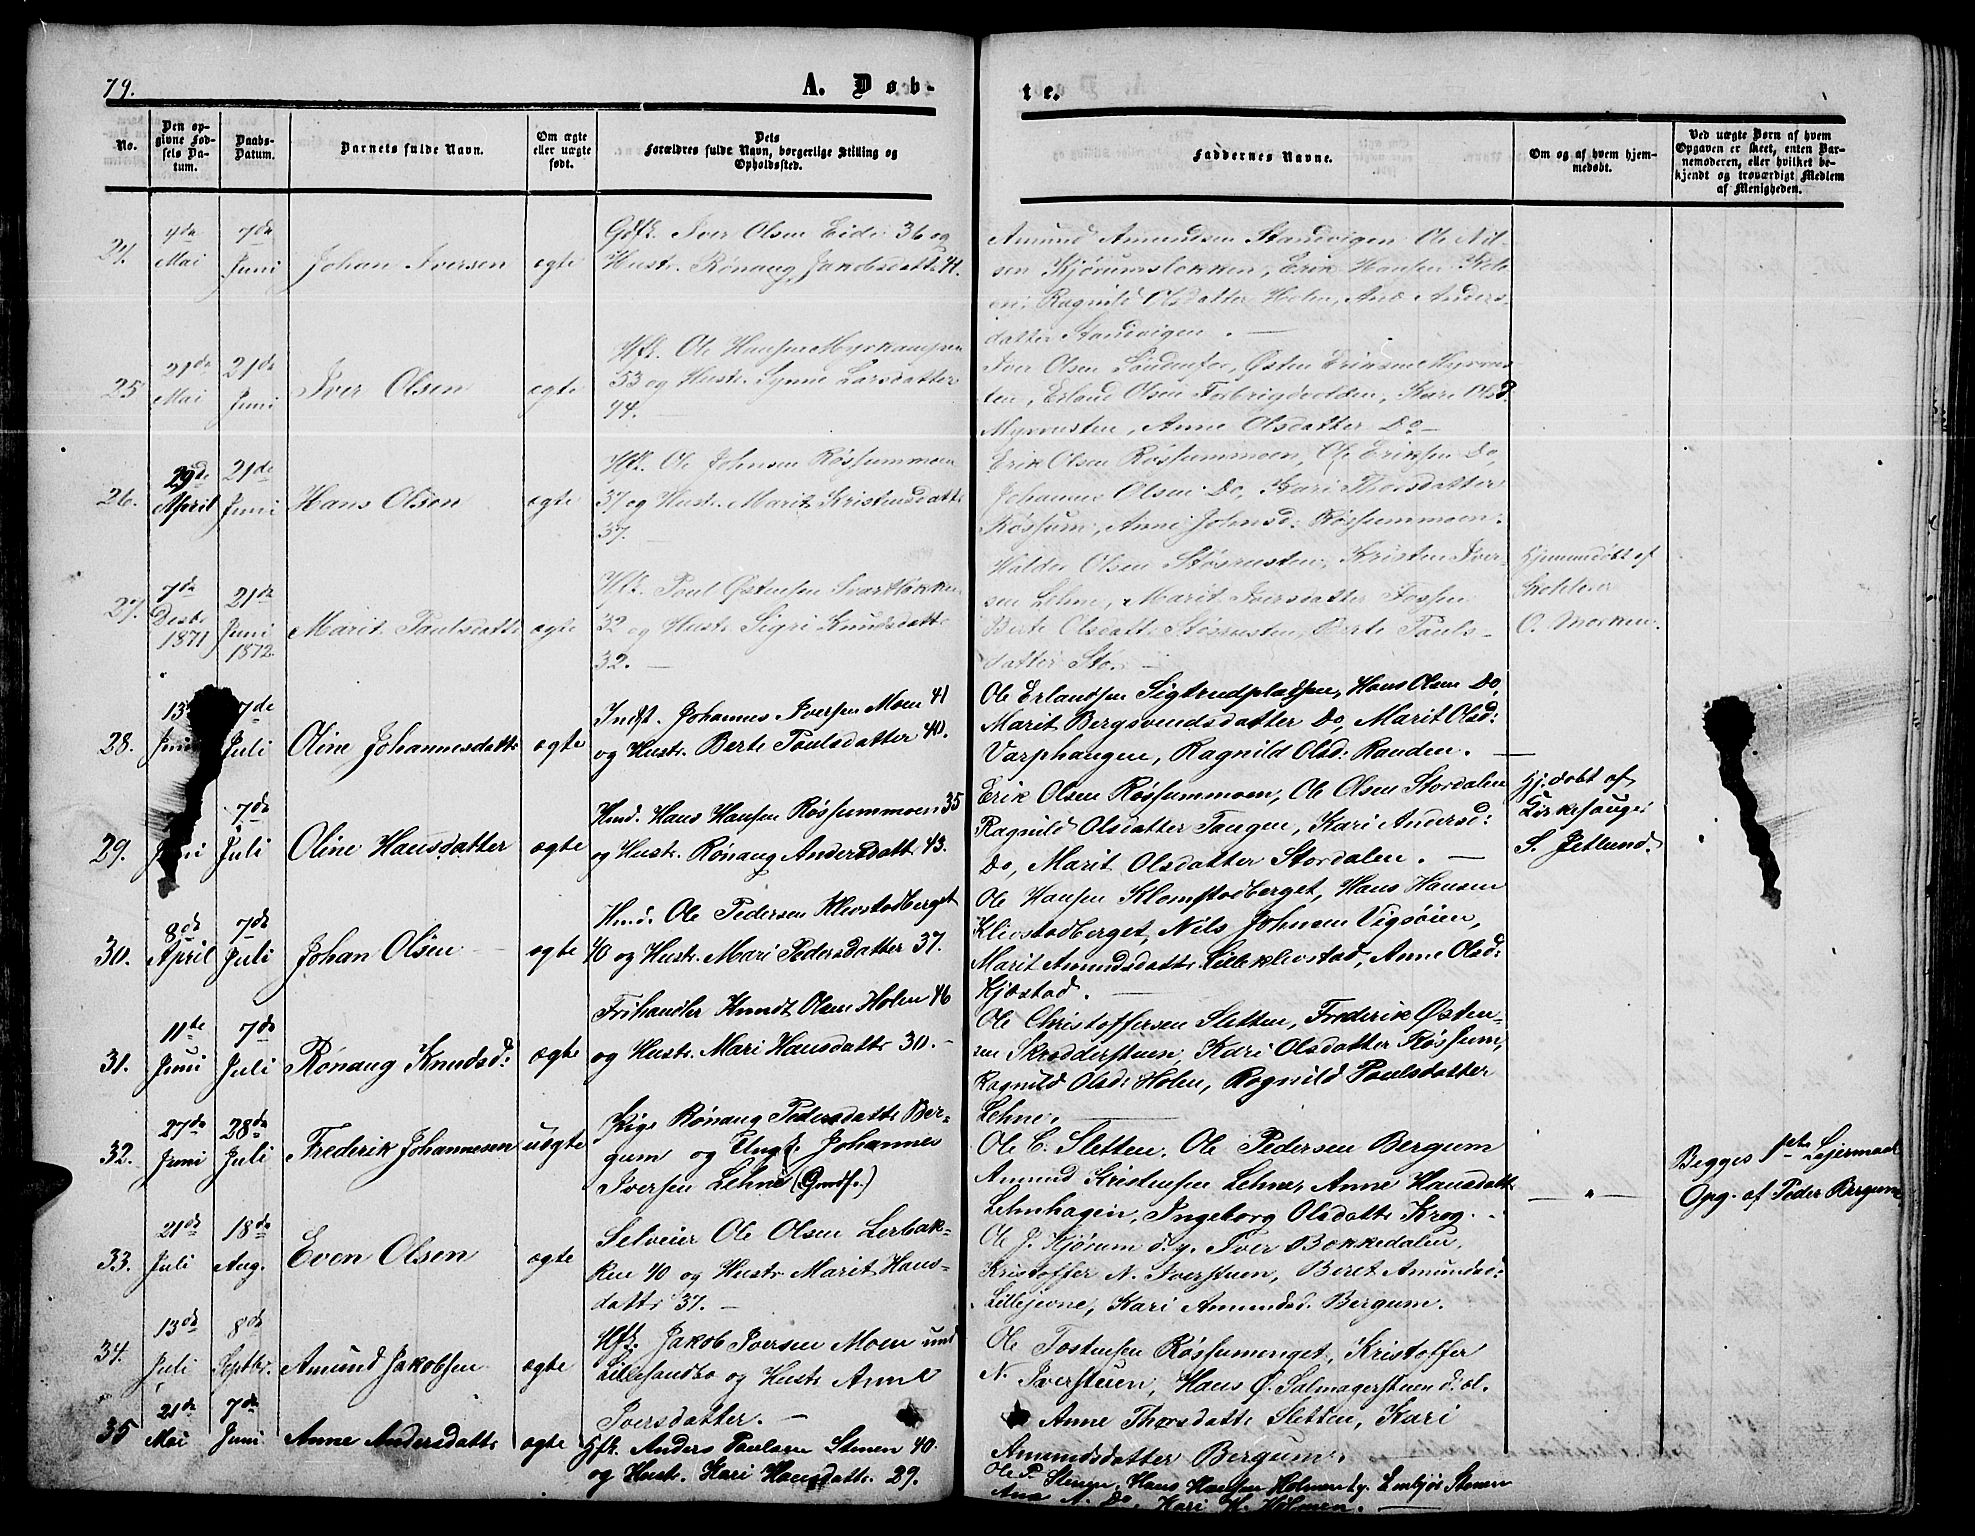 79.
A. Døb-
te.
No.
Den op-
givne Fød-
sels Da-
tum.
Daabs-
Datum.
Barnets fulde Navn.
Om ægte
eller uægte
født.
Dets
Forældres fulde Navn, borgerlige Stilling og
Opholdssted.
Faddernes Navne.
Om og af hvem hjem-
medøbt.
Ved uægte Børn af hvem
Opgaven er skeet, enten Bar-
nemoderen, eller hvilket be-
kjendt og troværdigt Medlem
af Menigheden.
24. 4de Mai 7de Juni Johan Iversen ægte
Gdbr. Iver Olsen Eide 36 og
Hustr. Rønaug Jakobsdatt. 41.
Amund Amundsen Standvigen Ole Nil-
sen Kjørumsløkken, Erik Hansen
Ragnild Olsdatter Holen, Ane Anders-
datter Standvigen. —
25 21de Mai 21de Juni Iver Olsen ægte
Hfk. Ole Hansen
53 og Hustr. Synne Larsdatter
44. —
Iver Olsen Østen Eriksen Myrvus-
ten, Erland Olsen Forbrigdvolden, Kari Olsd.
Myrvusten, Anne Olsdatter Do —
26. 29de April 21de Juni Hans Olsen ægte
Hfk. Ole Johnsen Røssummoen
37 og Hustr. Marit Kristensdatt.
37. —
Erik Olsen Røssummoen, Ole Eriksen Do,
Johannes Olsen Do, Kari Thorsdatter
Røssum, Anne Johnsd: Røssummoen.
27. 7de Desbr 1871 21de Juni 1872 Marit Paulsdatt. ægte
Hfk. Poul Østensen Svartløkken
32 og Hustr. Sigri Knudsdatt.
32. —
Haldor Olsen Støvrusten, Kristen Iver-
sen Lehne, Marit Iversdatter Fossen
Berte Olsdatt. Støvrusten, Berte Pauls-
datter Sto. —
Hjemmedøbt af
Skolelærer
O. Morken.
28. 13de Juni 7de Juli Oline Johannesdatt. ægte
Indst. Johannes Iversen Moen 41
og Hustr. Berte Paulsdatter 40.
Ole Erlandsen Sigtrudpladsen, Hans Olsen Do,
Marit Bergsvendsdatter Do, Marit Olsd:
Varphaugen, Ragnild Olsd: Randen. —
29. Juni 7de Juli Oline Hansdatter ægte
Hmd. Hans Hansen Røssummoen 35
og Hustr. Rønaug Andersdatt. 43.
Erik Olsen Røssummoen, Ole Olsen Stordalen
Ragnild Olsdatter Taugen, Kari Andersd:
Do, Marit Olsdatter Stordalen. —
Hj. døbt af
Kirkesanger
S. Jetlund.
30. 8de April 7de Juli Johan Olsen ægte
Hmd. Ole Pedersen Klevstadberget
40 og Hustr. Mari Pedersdatter 37.
Ole Hansen Klomstadberget, Hans Hansen
Klevstadberget, Nils Johnsen Vigsøien,
Marit Amundsdatt. Lilleklevstad, Anne Olsd:
Kjøstad. —
31. 11te Juni 7de Juli Rønaug Knudsd: ægte
Frihandler Knudt Olsen Holen 46
og Hustr. Mari Hansdatt. 30. —
Ole Christoffersen Sletten, Frederik Østen-
sen Skrædderstuen, Kari Olsdatter Røssum,
Ragnild Olsd: Holen, Ragnild Paulsdatter
Lehne. —
32. 27de Juni 28de Juli Frederik Johannesen uægte
Pige Rønaug Pedersdatt. Ber-
gum og Ungk. Johannes
Iversen Lehne (Gmdf.)
Ole C. Sletten, Ole Pedersen Bergum
Amund Kristensen Lehne, Anne Hansdatt.
Lehnhagen, Ingeborg Olsdatt. Krog. —
— " —
Begges 1ste Lejermaal
Opg. af Peder Bergum
33. 21de Juli 18de Aug. Even Olsen ægte
Selveier Ole Olsen Lerbak-
ken 40 og Hustr. Marit Hans-
datt. 37. —
Ole J. Kjørum d.y. Iver Bækkedalen,
Kristoffer N. Iverstuen, Beret Amundsd:
Lillejevne, Kari Amundsd. Bergum.
34. 13de Juli 8de Septbr. Amund Jakobsen ægte
Hfk. Jakob Iversen Moen und.
Lillesandbo og Hustr. Anne
Iversdatter. —
Ole Tostensen Røssumenget, Kristoffer
N. Iverstuen, Hans Ø. Salmagerstuen d. æl.
Anne Thorsdatt. Sletten, Kari
Amundsdatter Bergum.
35 21de Mai 7de Juni Anne Andersdatt. ægte
Hfk. Anders Paulsen Stenen 40.
og Hustr. Kari Hansdatt. 29.
Ole P. Stenen, Hans Hansen Holmen d.y. Embjør Stenen
Ane A. Do, Kari H. Holmen. —